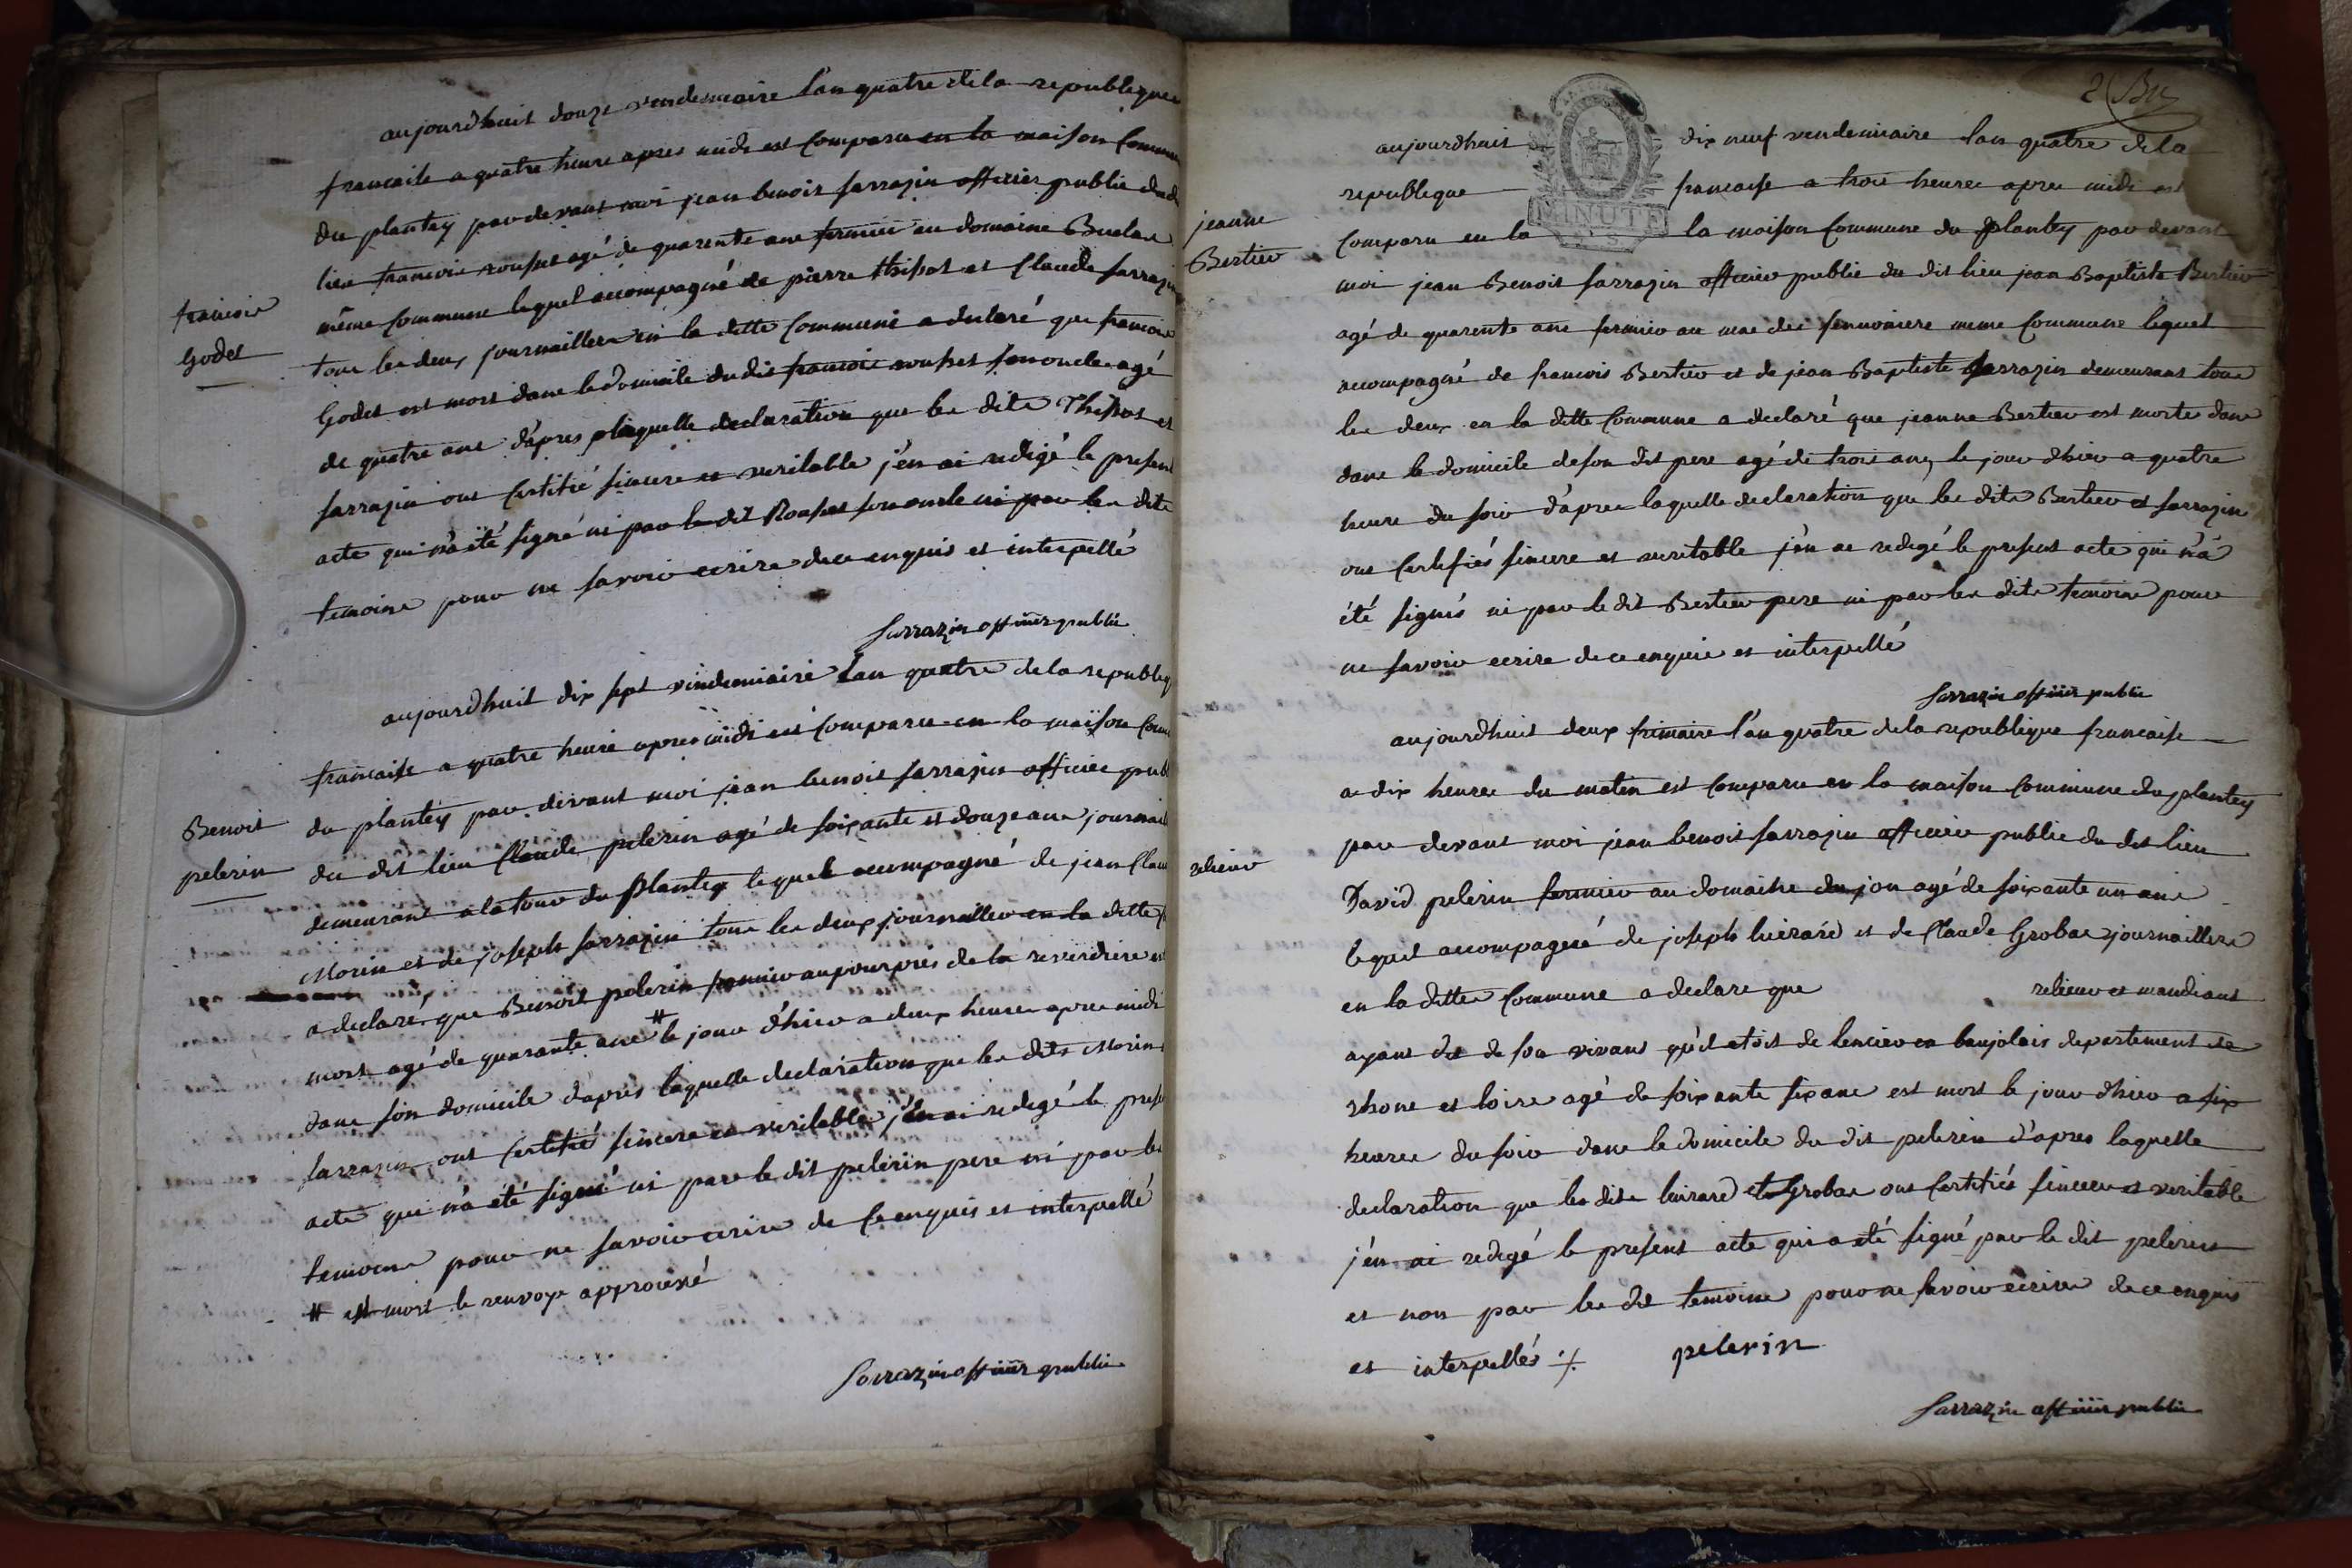 aujourdhuit douze vendemiaire l'an quatre de la republique
francaise a quatre heure apres midi est comparu en la maison commun
du plantey par devant moi jean benoit sarrazin officier public du dit
lieu francois rousset agé de quarente ans fermier au domaine
même commune lequel accompagné de pierre thissot et Claude sarrazin
tous les deux journalliers en la ditte commune a declaré que francois
francois
Godet
Godet est mort dans le domicile du dit francois rousset son oncle agé
de quatre ans d'apres laquelle declaration que les dits Thissot et
sarrazin ont certifié sincere et veritable j'en ai redigé le present
acte qui n'a été signé ni par le dit Rousset son oncle ni par les dits
temoins pour ne savoir ecrire de ce enquis et interpellé
sarrazin officier public
aujourdhuit dix sept vindemiaire l'an quatre de la republiq
francaise a quatre heure apres midi est comparu en la maison com
Benoit
pelerin
du plantey par devant moi jean benoit sarrazin officier publ
du dit lieu Claude pelerin agé de soixante et douze ans journall
demeurant a la tour du plantey lequel accompagné de jean Clau
Morin et de joseph sarrazin tous les deux journallier en la ditte
a declaré que Benoit pelerin fermier au pourpris de la
mort agé de quarante ans # le jour d'hier a deux heures apres midi
dans son domicile d'aprés laquelle declaration que les dits Morin
sarrazin ont certifié sincere et veritable j'en ai redigé le prese
acte qui n'a été signé ni par le dit pelerin pere ni par les
temoins pour ne savoir ecrire de ce enquis et interpellé
# est mort le renvoye approuvé
sarrazin officier public
2
aujourdhuit dix neuf vendemiaire l'an quatre de la
republique francaise a trois heures apres midi est
MINUTE
jeanne
Bertier
comparu en la la maison commune du plantey par devant
moi jean Benoit sarrazin officier public du dit lieu jean Baptiste Bertier
agé de quarente ans fermier au mas des meme commune lequel
accompagné de francois Bertier et de jean Baptiste sarrazin demeurant tous
les deux en la ditte commune a declaré que jeanne Bertier est morte dans
dans le domicile de son dit pere agé de trois ans le jour d'hier a quatre
heure du soir d'apres laquelle declaration que les dits Bertier et sarrazin
ont certifiés sincere et veritable j'en ai redigé le present acte qui n'a
été signés ni par le dit Bertier pere ni par les dits temoins pour
ne savoir ecrire de ce enquis et interpellé
sarrazin officier public
aujourdhuit deux frimaire l'an quatre de la republique francaise
a dix heures du matin est comparu en la maison commune du plantey
par devant moi jean benoit sarrazin officier public du dit lieu
relieur
David pelerin fermier au domaine agé de soixante un ans
lequel accompagné de joseph et de Claude Grobas journalliers
en la ditte commune a declare que relieur et mandiant
ayant dit de son vivant qu'il etoit de en baujolais departement de
rhone et loire agé de soixante six ans est mort le jour d'hier a six
heures du soir dans le domicile du dit pelerin d'apres laquelle
declaration que les dits et Grobas ont certifiés sincere et veritable
j'en ai redigé le present acte qui a été signé par le dit pelerin
et non par les dit temoins pour ne savoir ecrire de ce enquis
et interpellés
pelerin
sarrazin officier public